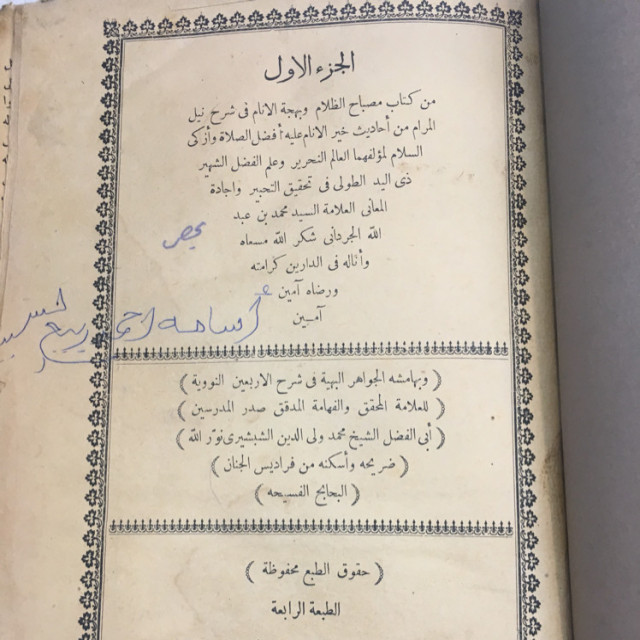 الجزء الاول
من كتاب مصباح الظلام وبهجة الانام فى شرح نيل
المرام من أحاديث خير الانام عليه أفضل الصلاة وأزكى
السلام لمؤلفهما العالم النحرير وعلم الفضل الشهير
ذى اليد الطولى فى تحقيق التحبير واجادة
المعانى العلامة السيد محمد بن عبد
الله الجردانى شكر الله مسعاه
وأناله فى الدارين كرامته
ورضاه آمين
آمين
أسامه احمد ربيع
( وبهامشه الجواهر البهية فى شرح الاربعين النووية )
( للعلامة المحقق والفهامة المدقق صدر المدرسين )
( أبى الفضل الشيخ محمد ولى الدين الشبشيرى نور الله )
( ضريحه وأسكنه من فراديس الجنان )
( البحابح الفسيحه )
( حقوق الطبع محفوظة )
الطبعة الرابعة